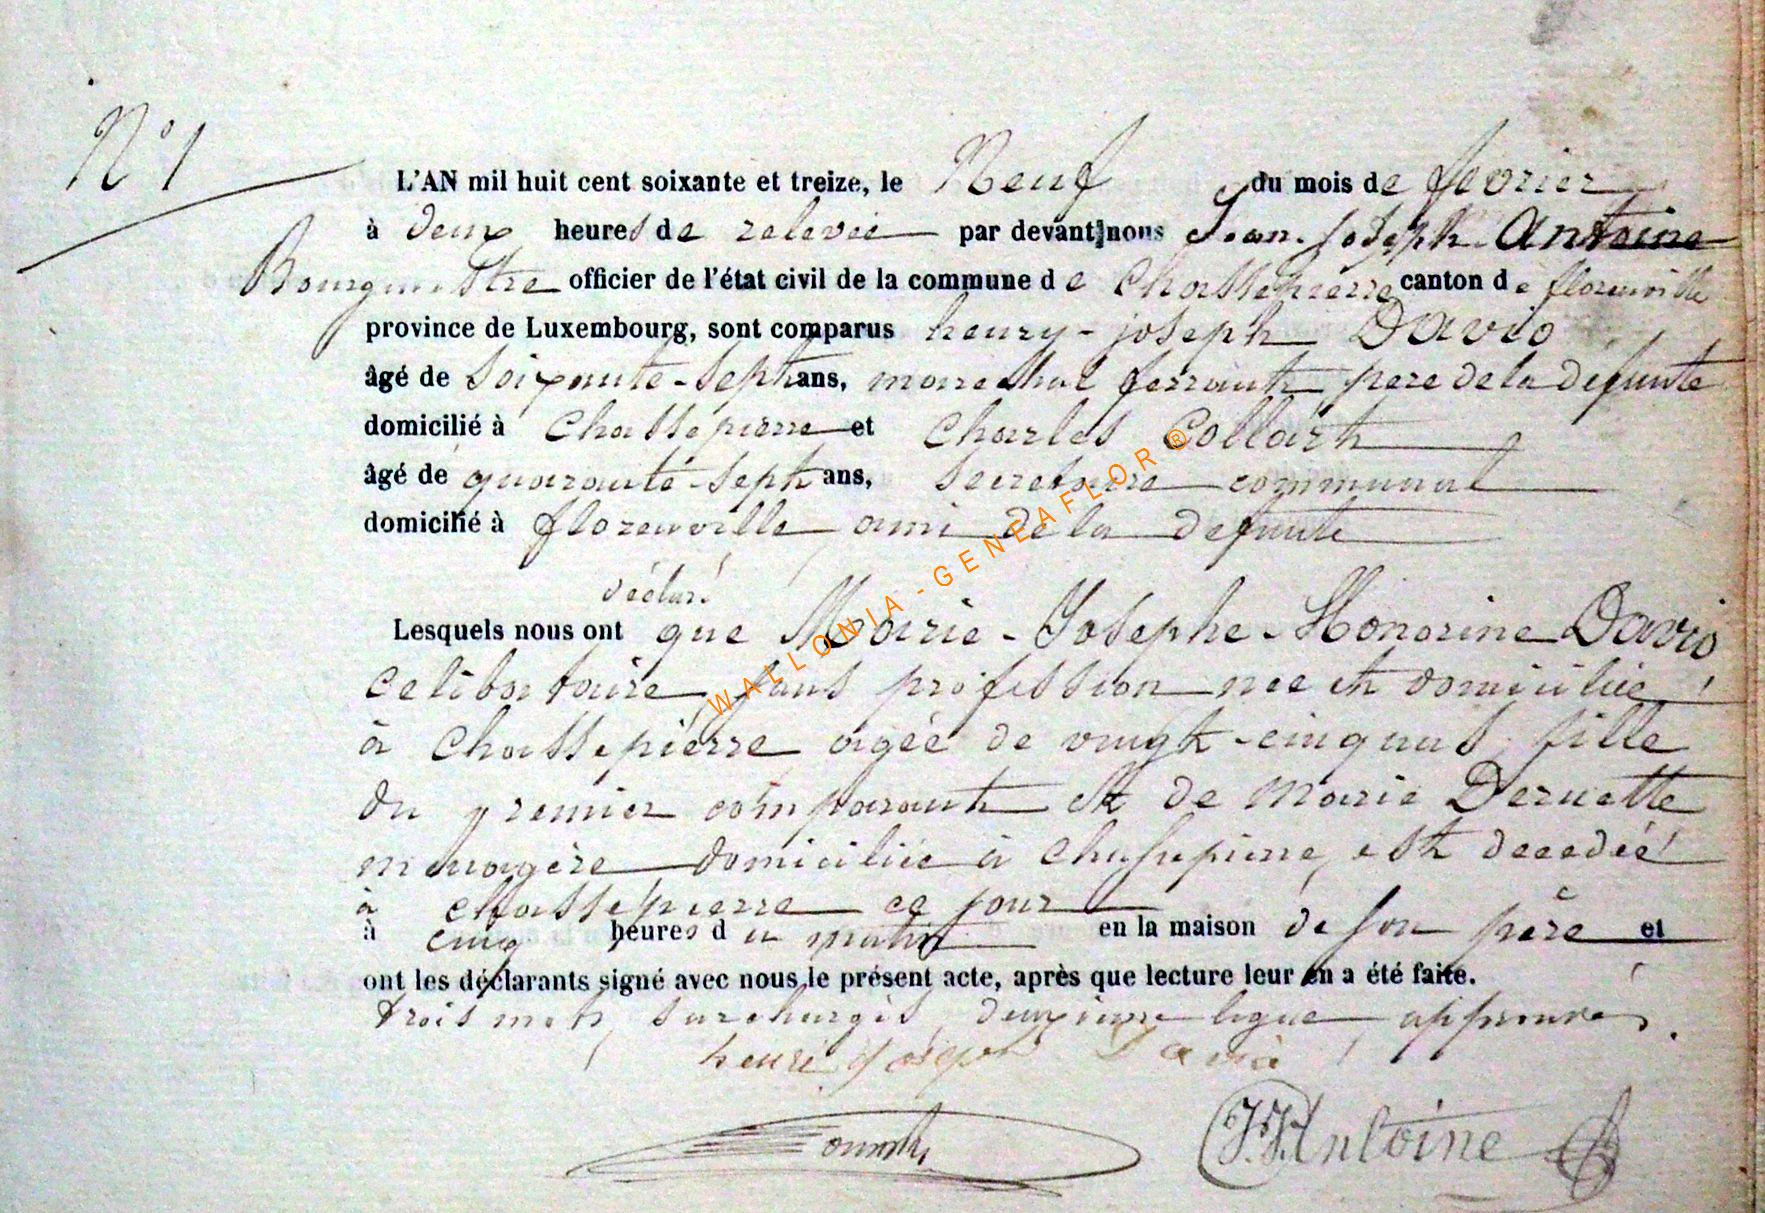 N° 1
L'AN mil huit cent soixante et treize, le Neuf du mois de fevrier
à deux heures de relevée par devant nous Jean-Joseph Antoine
Bourgmestre officier de l'état civil de la commune de Chassepierre canton de florenville
province de Luxembourg, sont comparus henry-joseph David
âgé de soixante-sept ans, marechal ferrant pere de la defunte
domicilié à Chassepierre et Charles Collart
âgé de quarante-sept ans, secretaire communal
domicilié à florenville ami de la defunte
déclaré
Lesquels nous ont que Marie-Josephe-Honorine David
celibataire, sans profession née et domiciliée
à Chassepierre agée de vingt-cinq ans, fille
du premier comparant et de Marie Deruette
menagère domiciliée à Chassepierre, est decedée
à chassepierre ce jour
à cinq heures du matin en la maison de son père et
ont les déclarants signé avec nous le présent acte, après que lecture leur en a été faite.
trois mots surchargés, deuxieme ligne approuvés.
henri joseph David
J.J. Antoine
WALLONIA - GENEAFLOR ®